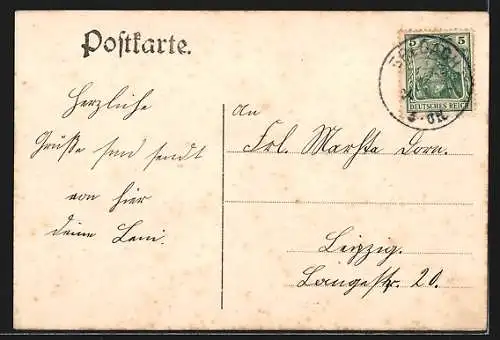 Postkarte.
Herzliche
Grüße sendet
von hier
deine Leni.
An
Frl. Martha Dorn.
Leipzig.
Langestr. 20.
5 5
DEUTSCHES REICH